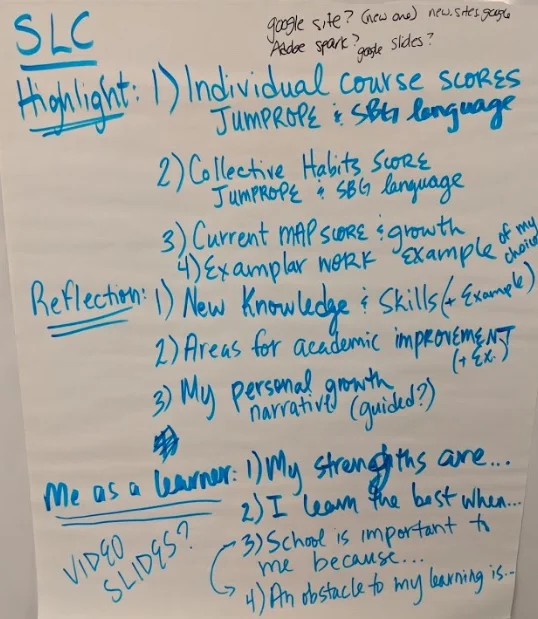 SLC
google site? (new one) new.sites.google
Adobe spark? google slides?
Highlight: 1) Individual course SCORES
JUMPROPE & SBG language
2) Collective Habits SCORE
JUMPROPE & SBG language
3) Current MAP SCORE & growth
4) Examplar WORK EXAMPLE of my choice
Reflection: 1) New Knowledge & Skills (+ Example)
2) Areas for academic improvement
(+ Ex.)
3) My personal growth
narrative (guided?)
Me as a learner: 1) My strengths are...
2) I learn the best when...
3) School is important to
me because...
4) An obstacle to my learning is...
VIDEO
SLIDES?